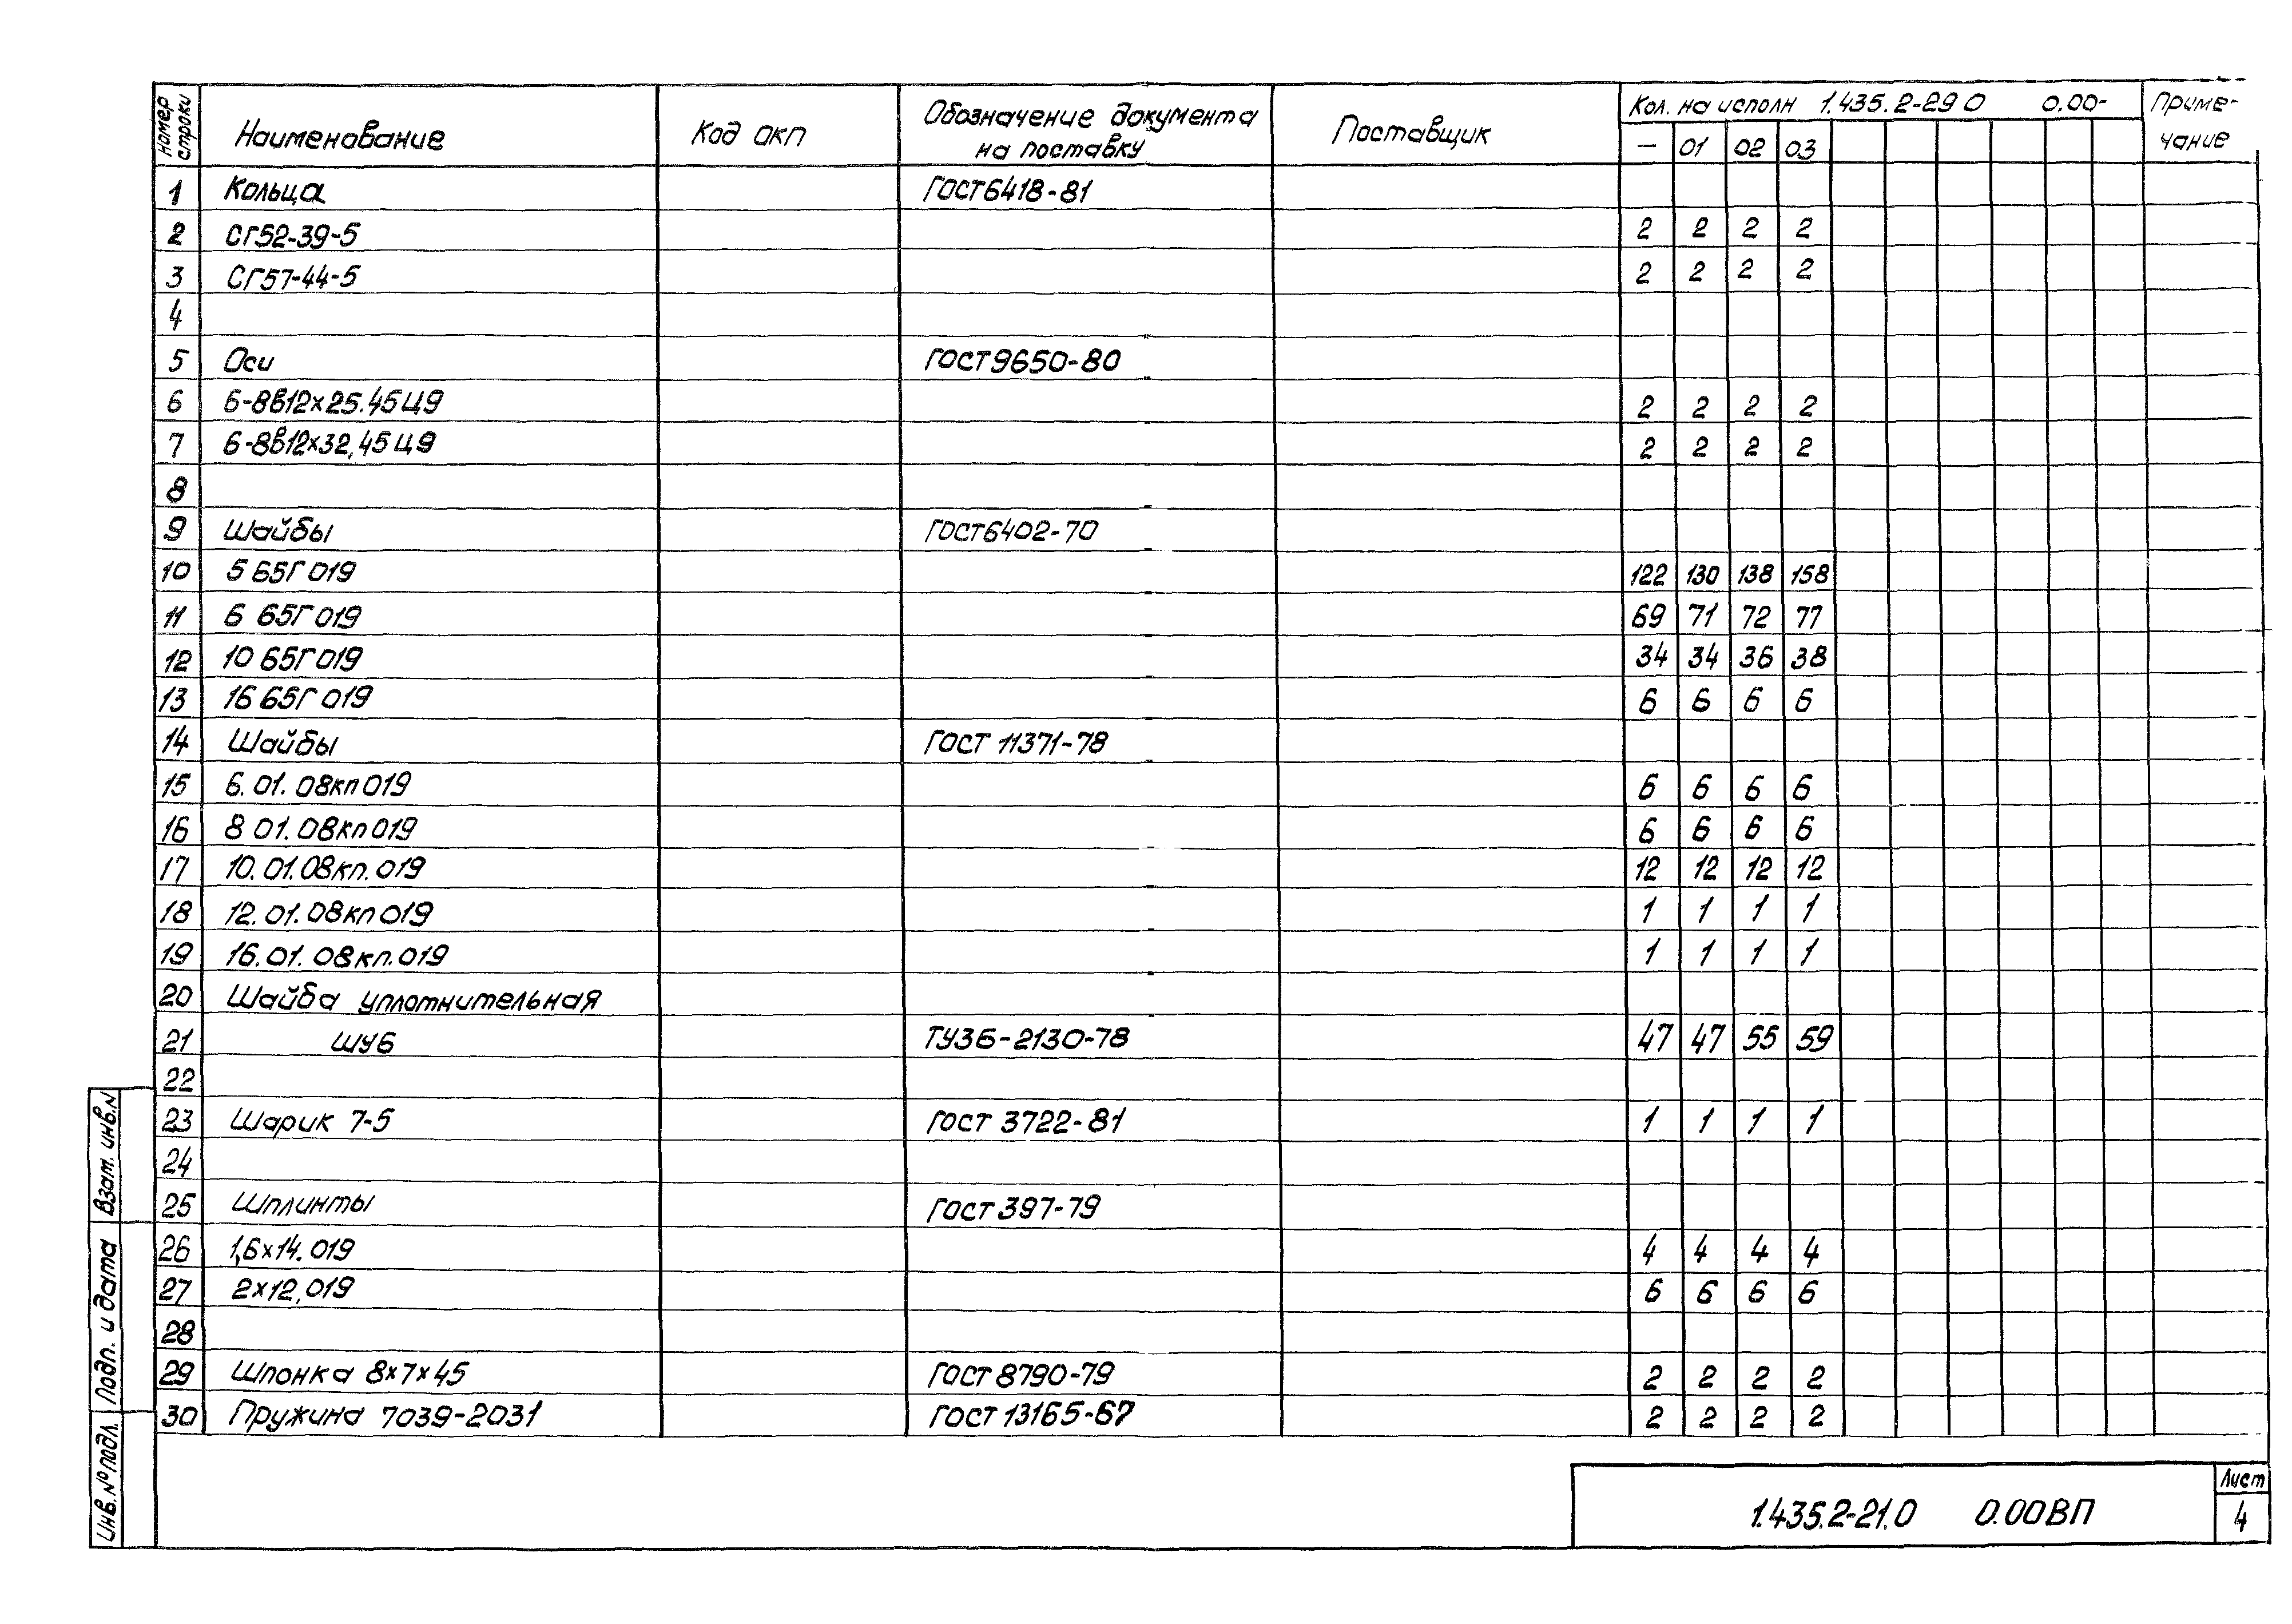 Номер строки Наименование Код ОКП Обозначение документа на поставку Поставщик Кол. на исполн 1.435.2-29 0 0.00- Примечание
— 01 02 03
1 Кольца ГОСТ6418-81
2 СГ52-39-5 2 2 2 2
3 СГ57-44-5 2 2 2 2
4
5 Оси ГОСТ9650-80
6 6-8в12х25.45Ц9 2 2 2 2
7 6-8в12х32,45Ц9 2 2 2 2
8
9 Шайбы ГОСТ6402-70
10 5 65Г 019 122 130 138 158
11 6 65Г 019 69 71 72 77
12 10 65Г 019 34 34 36 38
13 16 65Г 019 6 6 6 6
14 Шайбы ГОСТ 11371-78
15 6. 01. 08кп 019 6 6 6 6
16 8 01. 08кп 019 6 6 6 6
17 10. 01. 08кп. 019 12 12 12 12
18 12. 01. 08кп 019 1 1 1 1
19 16. 01. 08кп. 019 1 1 1 1
20 Шайба уплотнительная
21 ШУ6 ТУ36-2130-78 47 47 55 59
22
23 Шарик 7-5 ГОСТ 3722-81 1 1 1 1
24
25 Шплинты ГОСТ 397-79
26 1,6х14. 019 4 4 4 4
27 2х12,019 6 6 6 6
28
29 Шпонка 8х7х45 ГОСТ 8790-79 2 2 2 2
30 Пружина 7039-2031 ГОСТ 13165-67 2 2 2 2
Взам. инв. N
Подп. и дата
Инв. № подл.
1.435.2-21.0 0.00ВП
Лист
4